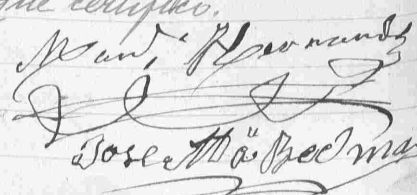 que certifico.
Man.l Hernandz
Jose Ma Bedma